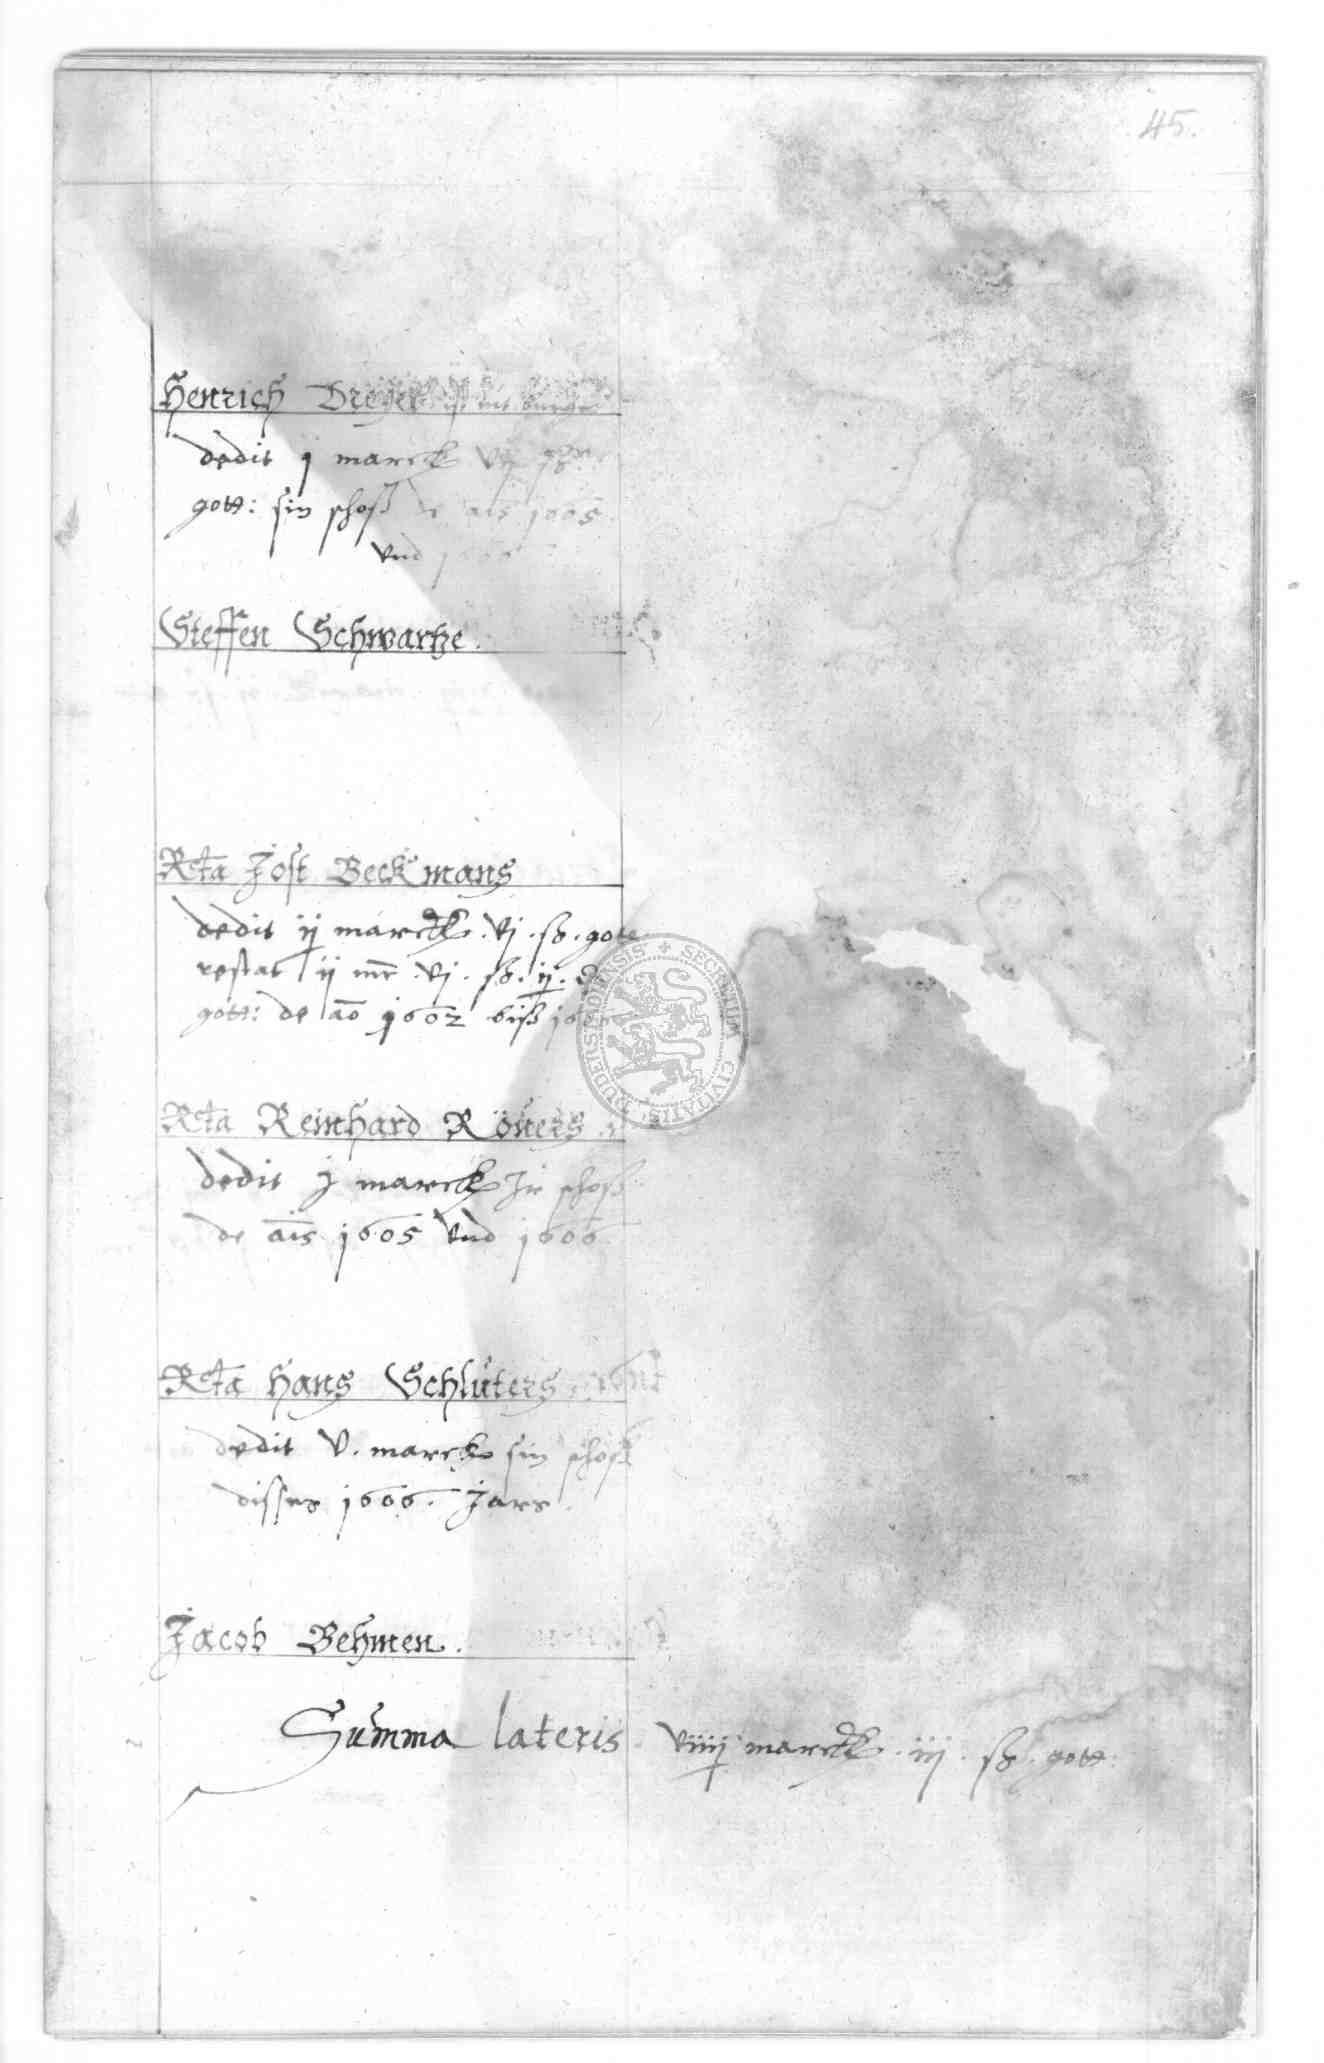 45.
Henrich Dreyer
dedit j marck viij ß
gott: sin schoß de ais 1605
vnd 1606
Steffen Schwartze.
Rta Jost Beckmans
dedit ij marck. vj. ß. gott
restat ij mr. vj. ß. ij. d
gott: de ao 1602 biß
Rta Reinhard Röners
dedit j marck Jr schoß
de ais 1605 vnd 1606
Rta Hans Schlüters
dedit v. marck sin schoß
disses 1606. Jars.
Jacob Behmen.
Summa lateris viiij marck. iij. ß. gott
SECRETUM CIVITATIS DUDERSTADIENSIS